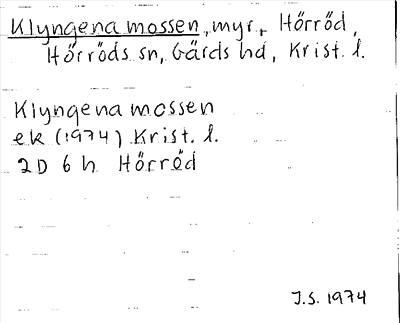 Klyngena mossen, myr, Hörröd,
Hörröds sn, Gärds hd, Krist. l.
Klyngena mossen
ek (1974) Krist. l.
2D 6h Hörröd
J.S. 1974